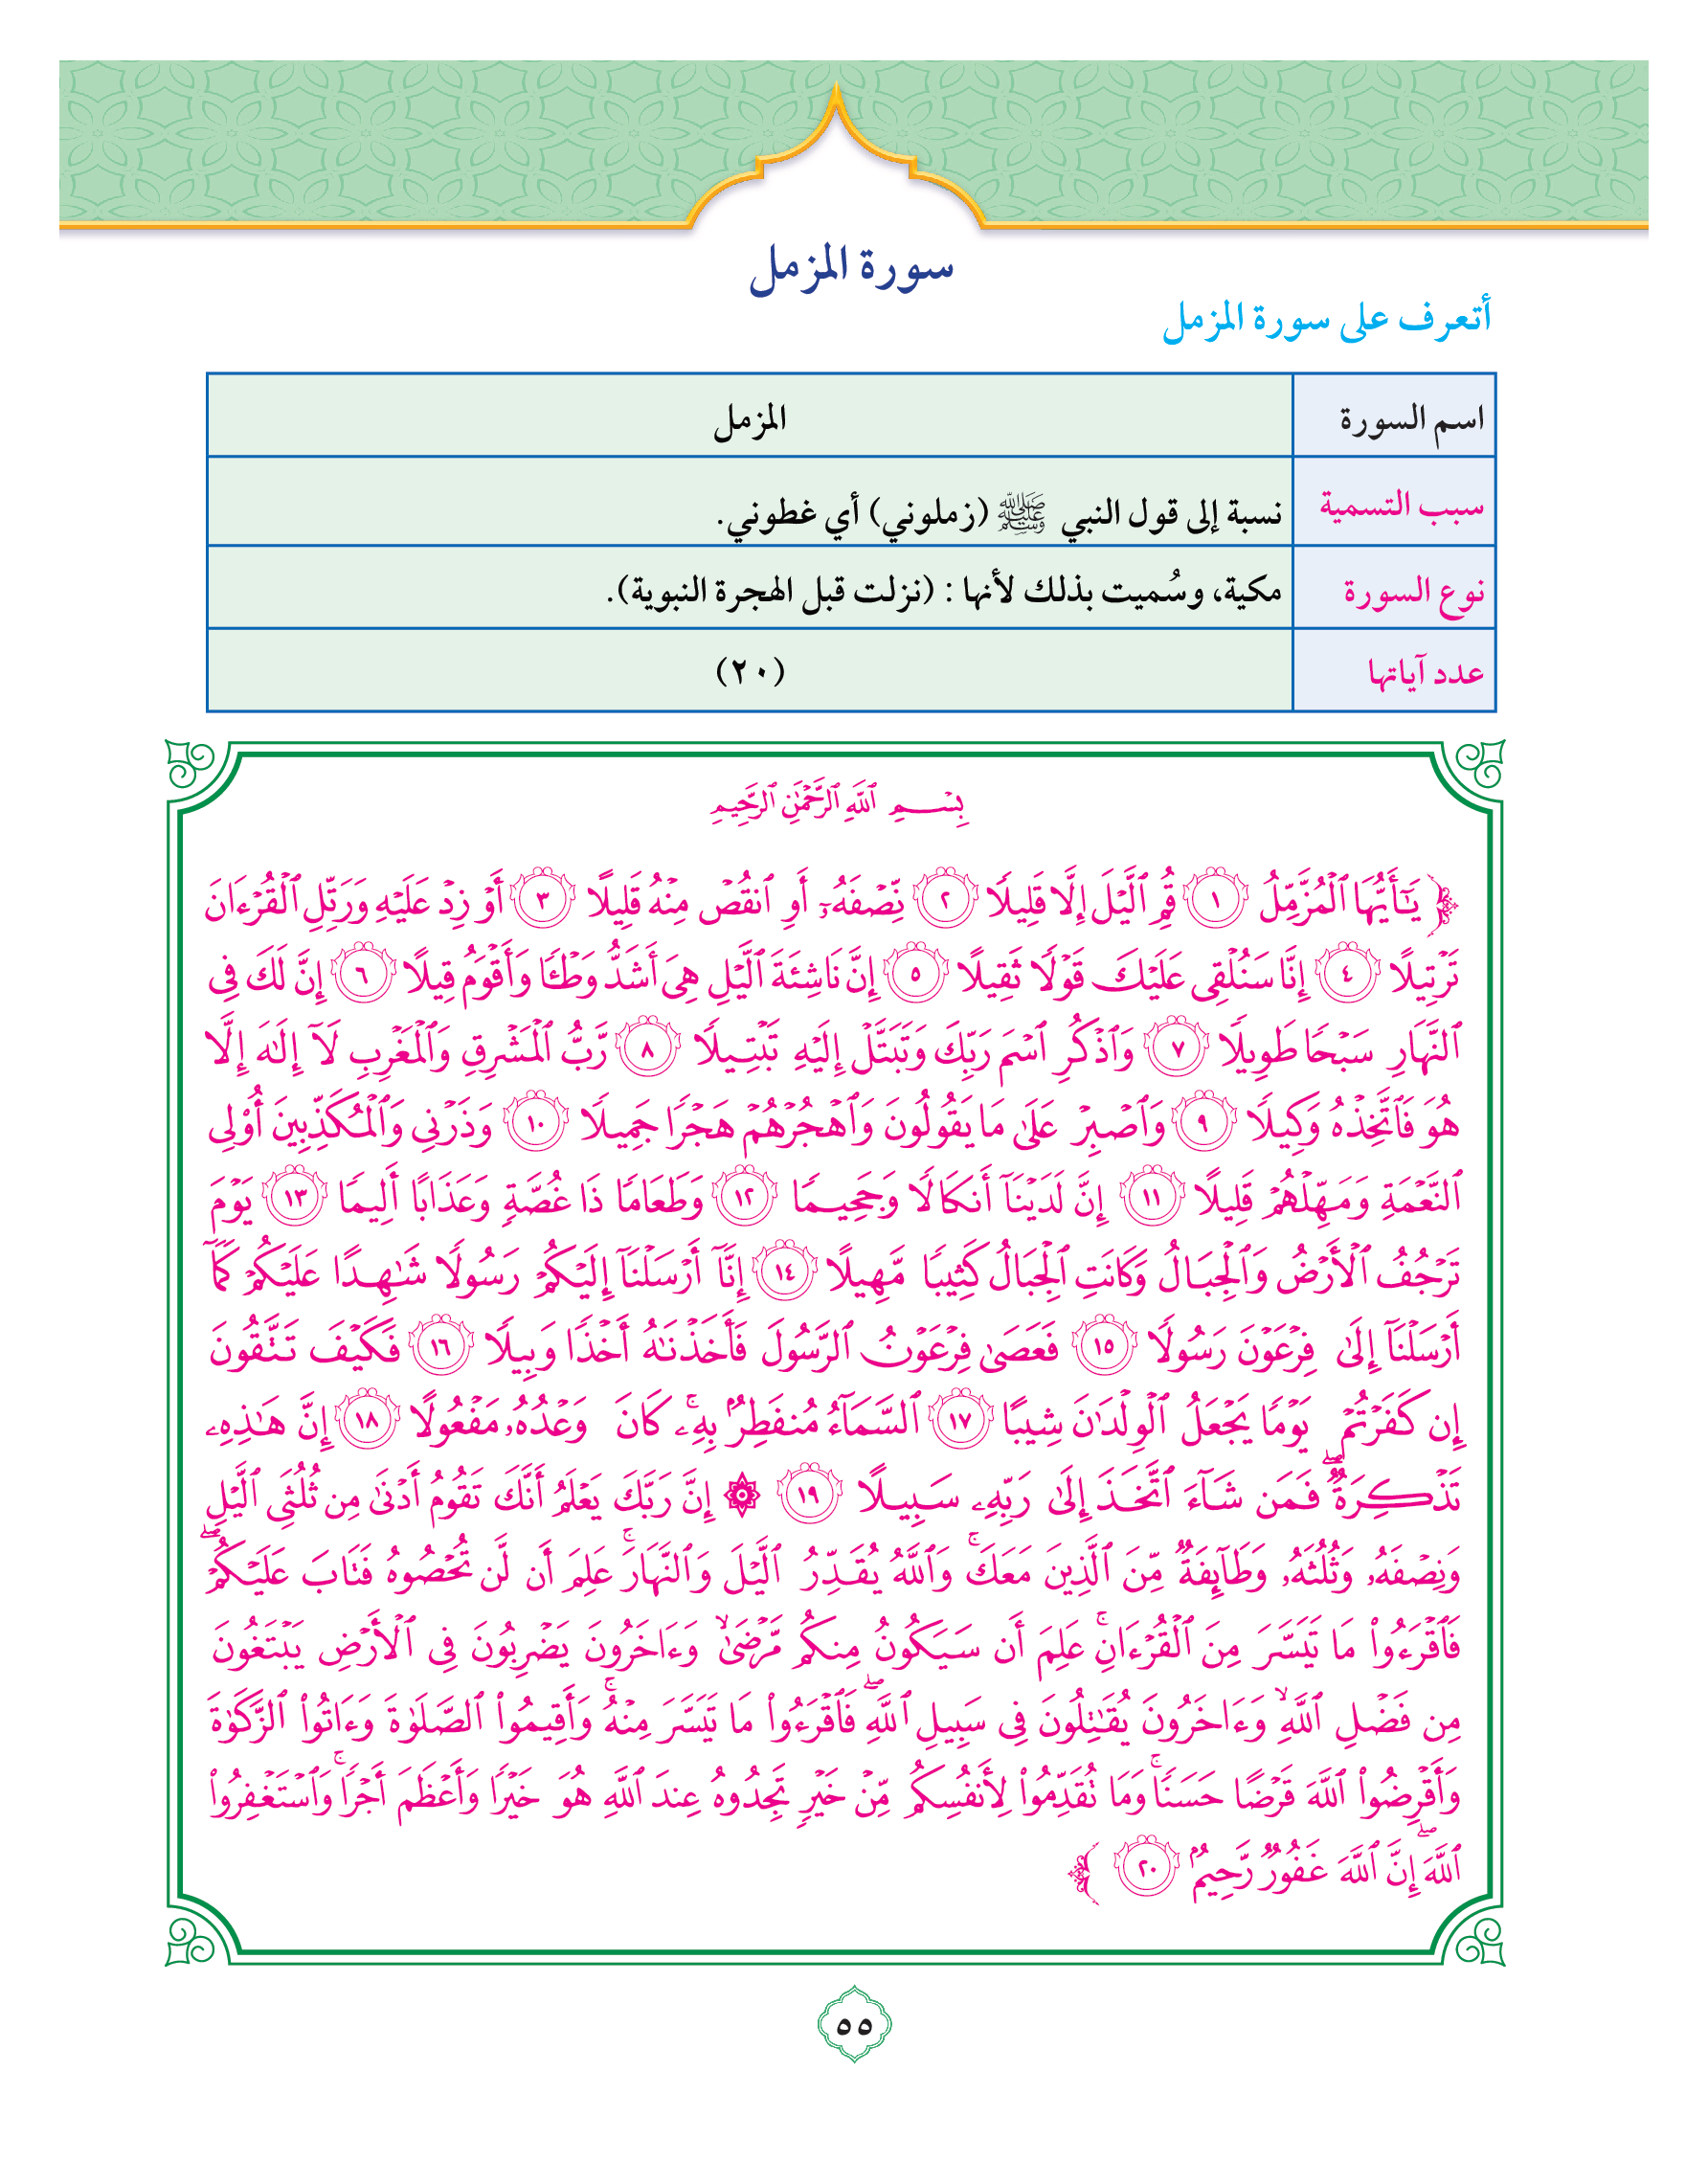 سورة المزمل
أتعرف على سورة المزمل
اسم السورة المزمل
سبب التسمية نسبة إلى قول النبي ﷺ (زملوني) أي غطوني.
نوع السورة مكية، وسُميت بذلك لأنها : (نزلت قبل الهجرة النبوية).
عدد آياتها (٢٠)
بِسْمِ ٱللَّهِ ٱلرَّحْمَٰنِ ٱلرَّحِيمِ
﴿ يَٰٓأَيُّهَا ٱلْمُزَّمِّلُ ١ قُمِ ٱلَّيْلَ إِلَّا قَلِيلًا ٢ نِّصْفَهُۥٓ أَوِ ٱنقُصْ مِنْهُ قَلِيلًا ٣ أَوْ زِدْ عَلَيْهِ وَرَتِّلِ ٱلْقُرْءَانَ
تَرْتِيلًا ٤ إِنَّا سَنُلْقِى عَلَيْكَ قَوْلًا ثَقِيلًا ٥ إِنَّ نَاشِئَةَ ٱلَّيْلِ هِىَ أَشَدُّ وَطْـًٔا وَأَقْوَمُ قِيلًا ٦ إِنَّ لَكَ فِى
ٱلنَّهَارِ سَبْحًا طَوِيلًا ٧ وَٱذْكُرِ ٱسْمَ رَبِّكَ وَتَبَتَّلْ إِلَيْهِ تَبْتِيلًا ٨ رَّبُّ ٱلْمَشْرِقِ وَٱلْمَغْرِبِ لَآ إِلَٰهَ إِلَّا
هُوَ فَٱتَّخِذْهُ وَكِيلًا ٩ وَٱصْبِرْ عَلَىٰ مَا يَقُولُونَ وَٱهْجُرْهُمْ هَجْرًا جَمِيلًا ١٠ وَذَرْنِى وَٱلْمُكَذِّبِينَ أُو۟لِى
ٱلنَّعْمَةِ وَمَهِّلْهُمْ قَلِيلًا ١١ إِنَّ لَدَيْنَآ أَنكَالًا وَجَحِيمًا ١٢ وَطَعَامًا ذَا غُصَّةٍ وَعَذَابًا أَلِيمًا ١٣ يَوْمَ
تَرْجُفُ ٱلْأَرْضُ وَٱلْجِبَالُ وَكَانَتِ ٱلْجِبَالُ كَثِيبًا مَّهِيلًا ١٤ إِنَّآ أَرْسَلْنَآ إِلَيْكُمْ رَسُولًا شَٰهِدًا عَلَيْكُمْ كَمَآ
أَرْسَلْنَآ إِلَىٰ فِرْعَوْنَ رَسُولًا ١٥ فَعَصَىٰ فِرْعَوْنُ ٱلرَّسُولَ فَأَخَذْنَٰهُ أَخْذًا وَبِيلًا ١٦ فَكَيْفَ تَتَّقُونَ
إِن كَفَرْتُمْ يَوْمًا يَجْعَلُ ٱلْوِلْدَٰنَ شِيبًا ١٧ ٱلسَّمَآءُ مُنفَطِرٌۢ بِهِۦ ۚ كَانَ وَعْدُهُۥ مَفْعُولًا ١٨ إِنَّ هَٰذِهِۦ
تَذْكِرَةٌ ۖ فَمَن شَآءَ ٱتَّخَذَ إِلَىٰ رَبِّهِۦ سَبِيلًا ١٩ ۞ إِنَّ رَبَّكَ يَعْلَمُ أَنَّكَ تَقُومُ أَدْنَىٰ مِن ثُلُثَىِ ٱلَّيْلِ
وَنِصْفَهُۥ وَثُلُثَهُۥ وَطَآئِفَةٌ مِّنَ ٱلَّذِينَ مَعَكَ ۚ وَٱللَّهُ يُقَدِّرُ ٱلَّيْلَ وَٱلنَّهَارَ ۚ عَلِمَ أَن لَّن تُحْصُوهُ فَتَابَ عَلَيْكُمْ ۖ
فَٱقْرَءُوا۟ مَا تَيَسَّرَ مِنَ ٱلْقُرْءَانِ ۚ عَلِمَ أَن سَيَكُونُ مِنكُم مَّرْضَىٰ ۙ وَءَاخَرُونَ يَضْرِبُونَ فِى ٱلْأَرْضِ يَبْتَغُونَ
مِن فَضْلِ ٱللَّهِ ۙ وَءَاخَرُونَ يُقَٰتِلُونَ فِى سَبِيلِ ٱللَّهِ ۖ فَٱقْرَءُوا۟ مَا تَيَسَّرَ مِنْهُ ۚ وَأَقِيمُوا۟ ٱلصَّلَوٰةَ وَءَاتُوا۟ ٱلزَّكَوٰةَ
وَأَقْرِضُوا۟ ٱللَّهَ قَرْضًا حَسَنًا ۚ وَمَا تُقَدِّمُوا۟ لِأَنفُسِكُم مِّنْ خَيْرٍ تَجِدُوهُ عِندَ ٱللَّهِ هُوَ خَيْرًا وَأَعْظَمَ أَجْرًا ۚ وَٱسْتَغْفِرُوا۟
ٱللَّهَ ۖ إِنَّ ٱللَّهَ غَفُورٌ رَّحِيمٌۢ ٢٠ ﴾
٥٥